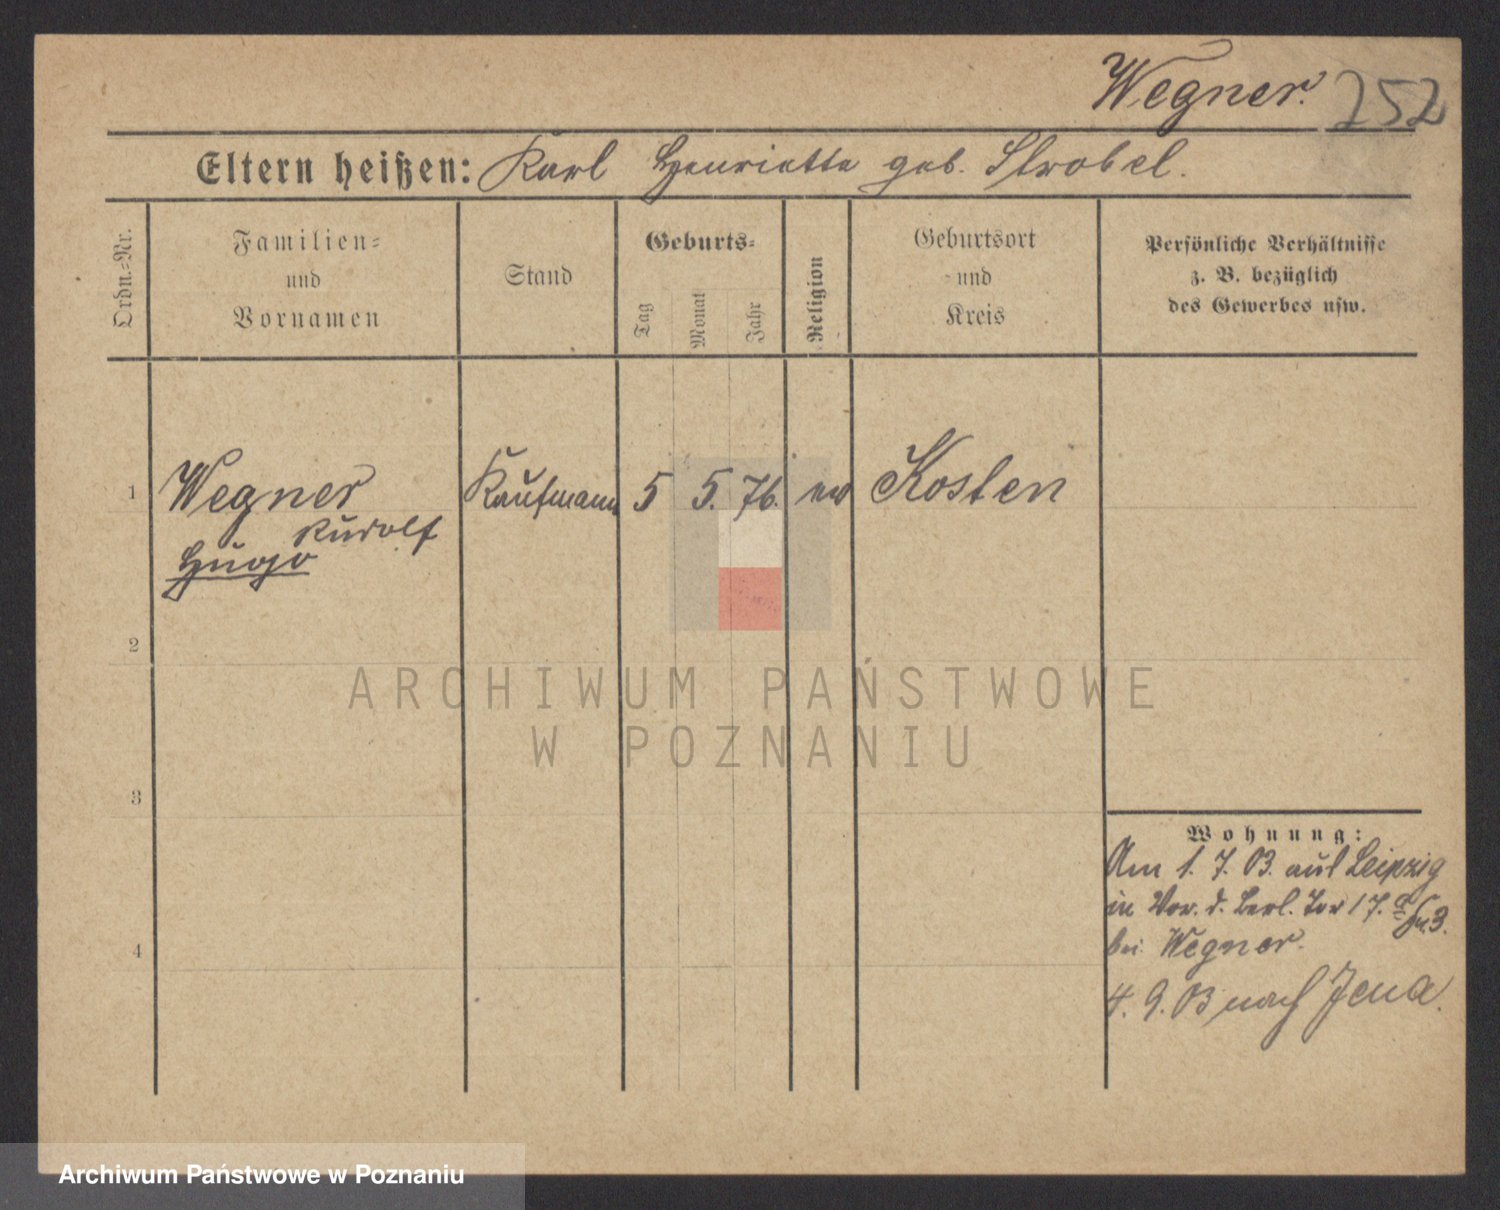 Wegner. 252
Eltern heißen: Karl Henriette geb. Strobel.
Ordn.-Nr.
Familien-
und
Vornamen
Stand
Geburts-
Tag
Monat
Jahr
Religion
Geburtsort
und
Kreis
Persönliche Verhältnisse
z. B. bezüglich
des Gewerbes usw.
1 Wegner Kaufmann 5 5. 76. ev Kosten
Rudolf
Hugo
2
3
4
Wohnung:
Am 1. 7. 03. aus Leipzig
in Vor. d. Berl. Tor 17.
bei Wegner.
4. 9. 03 nach Jena.
ARCHIWUM PAŃSTWOWE
W POZNANIU
Archiwum Państwowe w Poznaniu